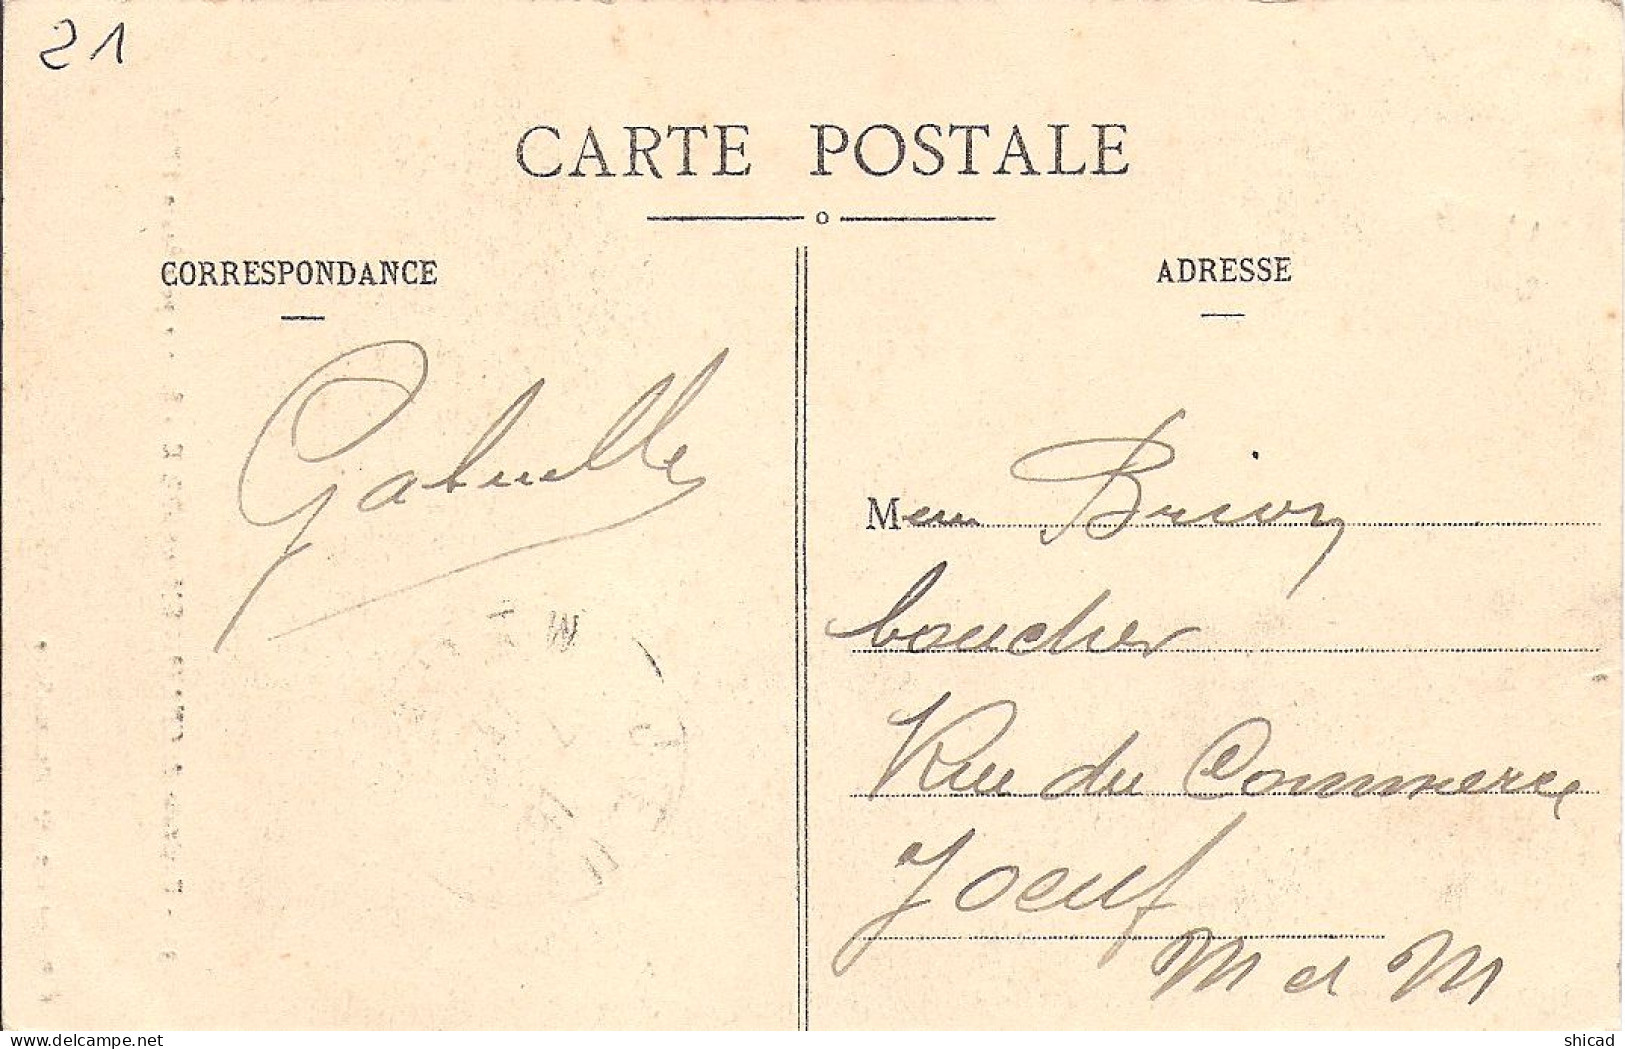 21
CARTE POSTALE
CORRESPONDANCE
Gabrielle
ADRESSE
Mem Brion
boucher
Rue du Commerce
Joeuf
M et M
delcampe.net
shicad